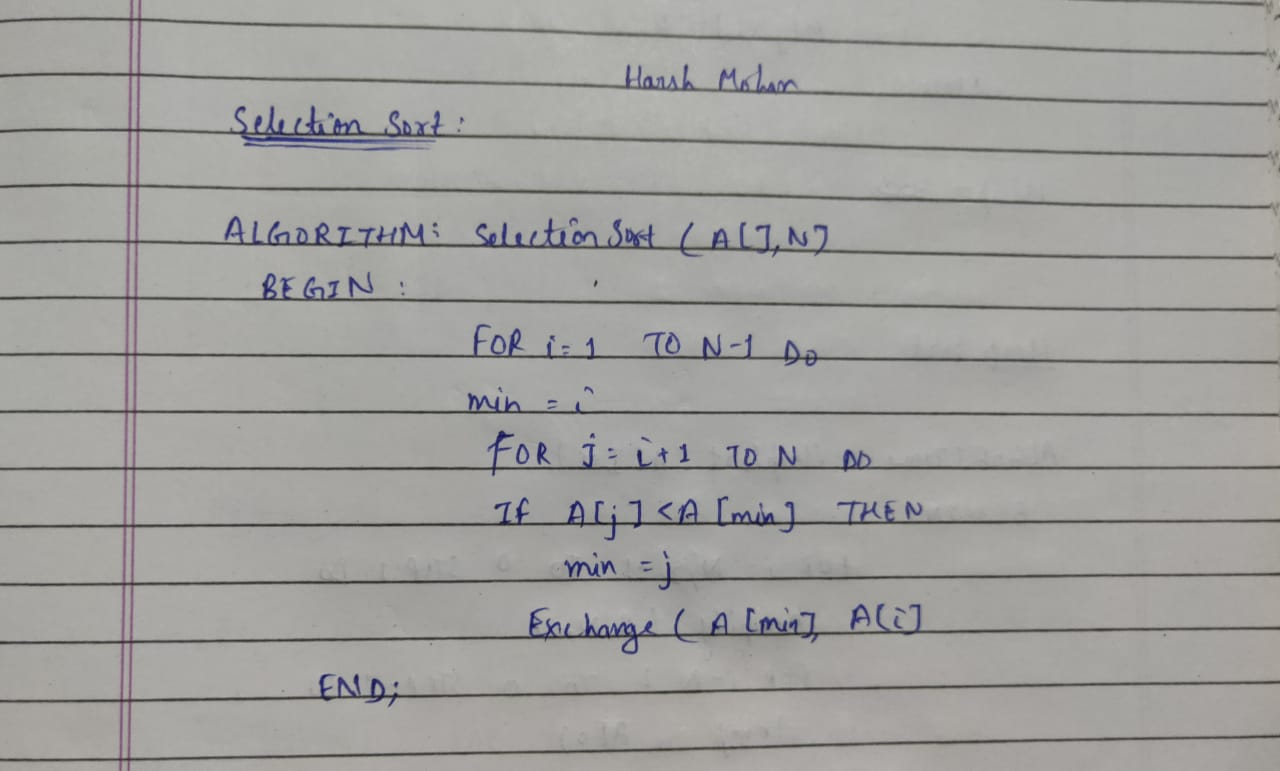 Harsh Mohan
Selection Sort:
ALGORITHM: Selection Sort (A[], N]
BEGIN :
FOR i = 1 TO N-1 DO
min = i
FOR j = i+1 TO N DO
If A[j] < A [min] THEN
min = j
Exchange ( A [min], A[i]
END;